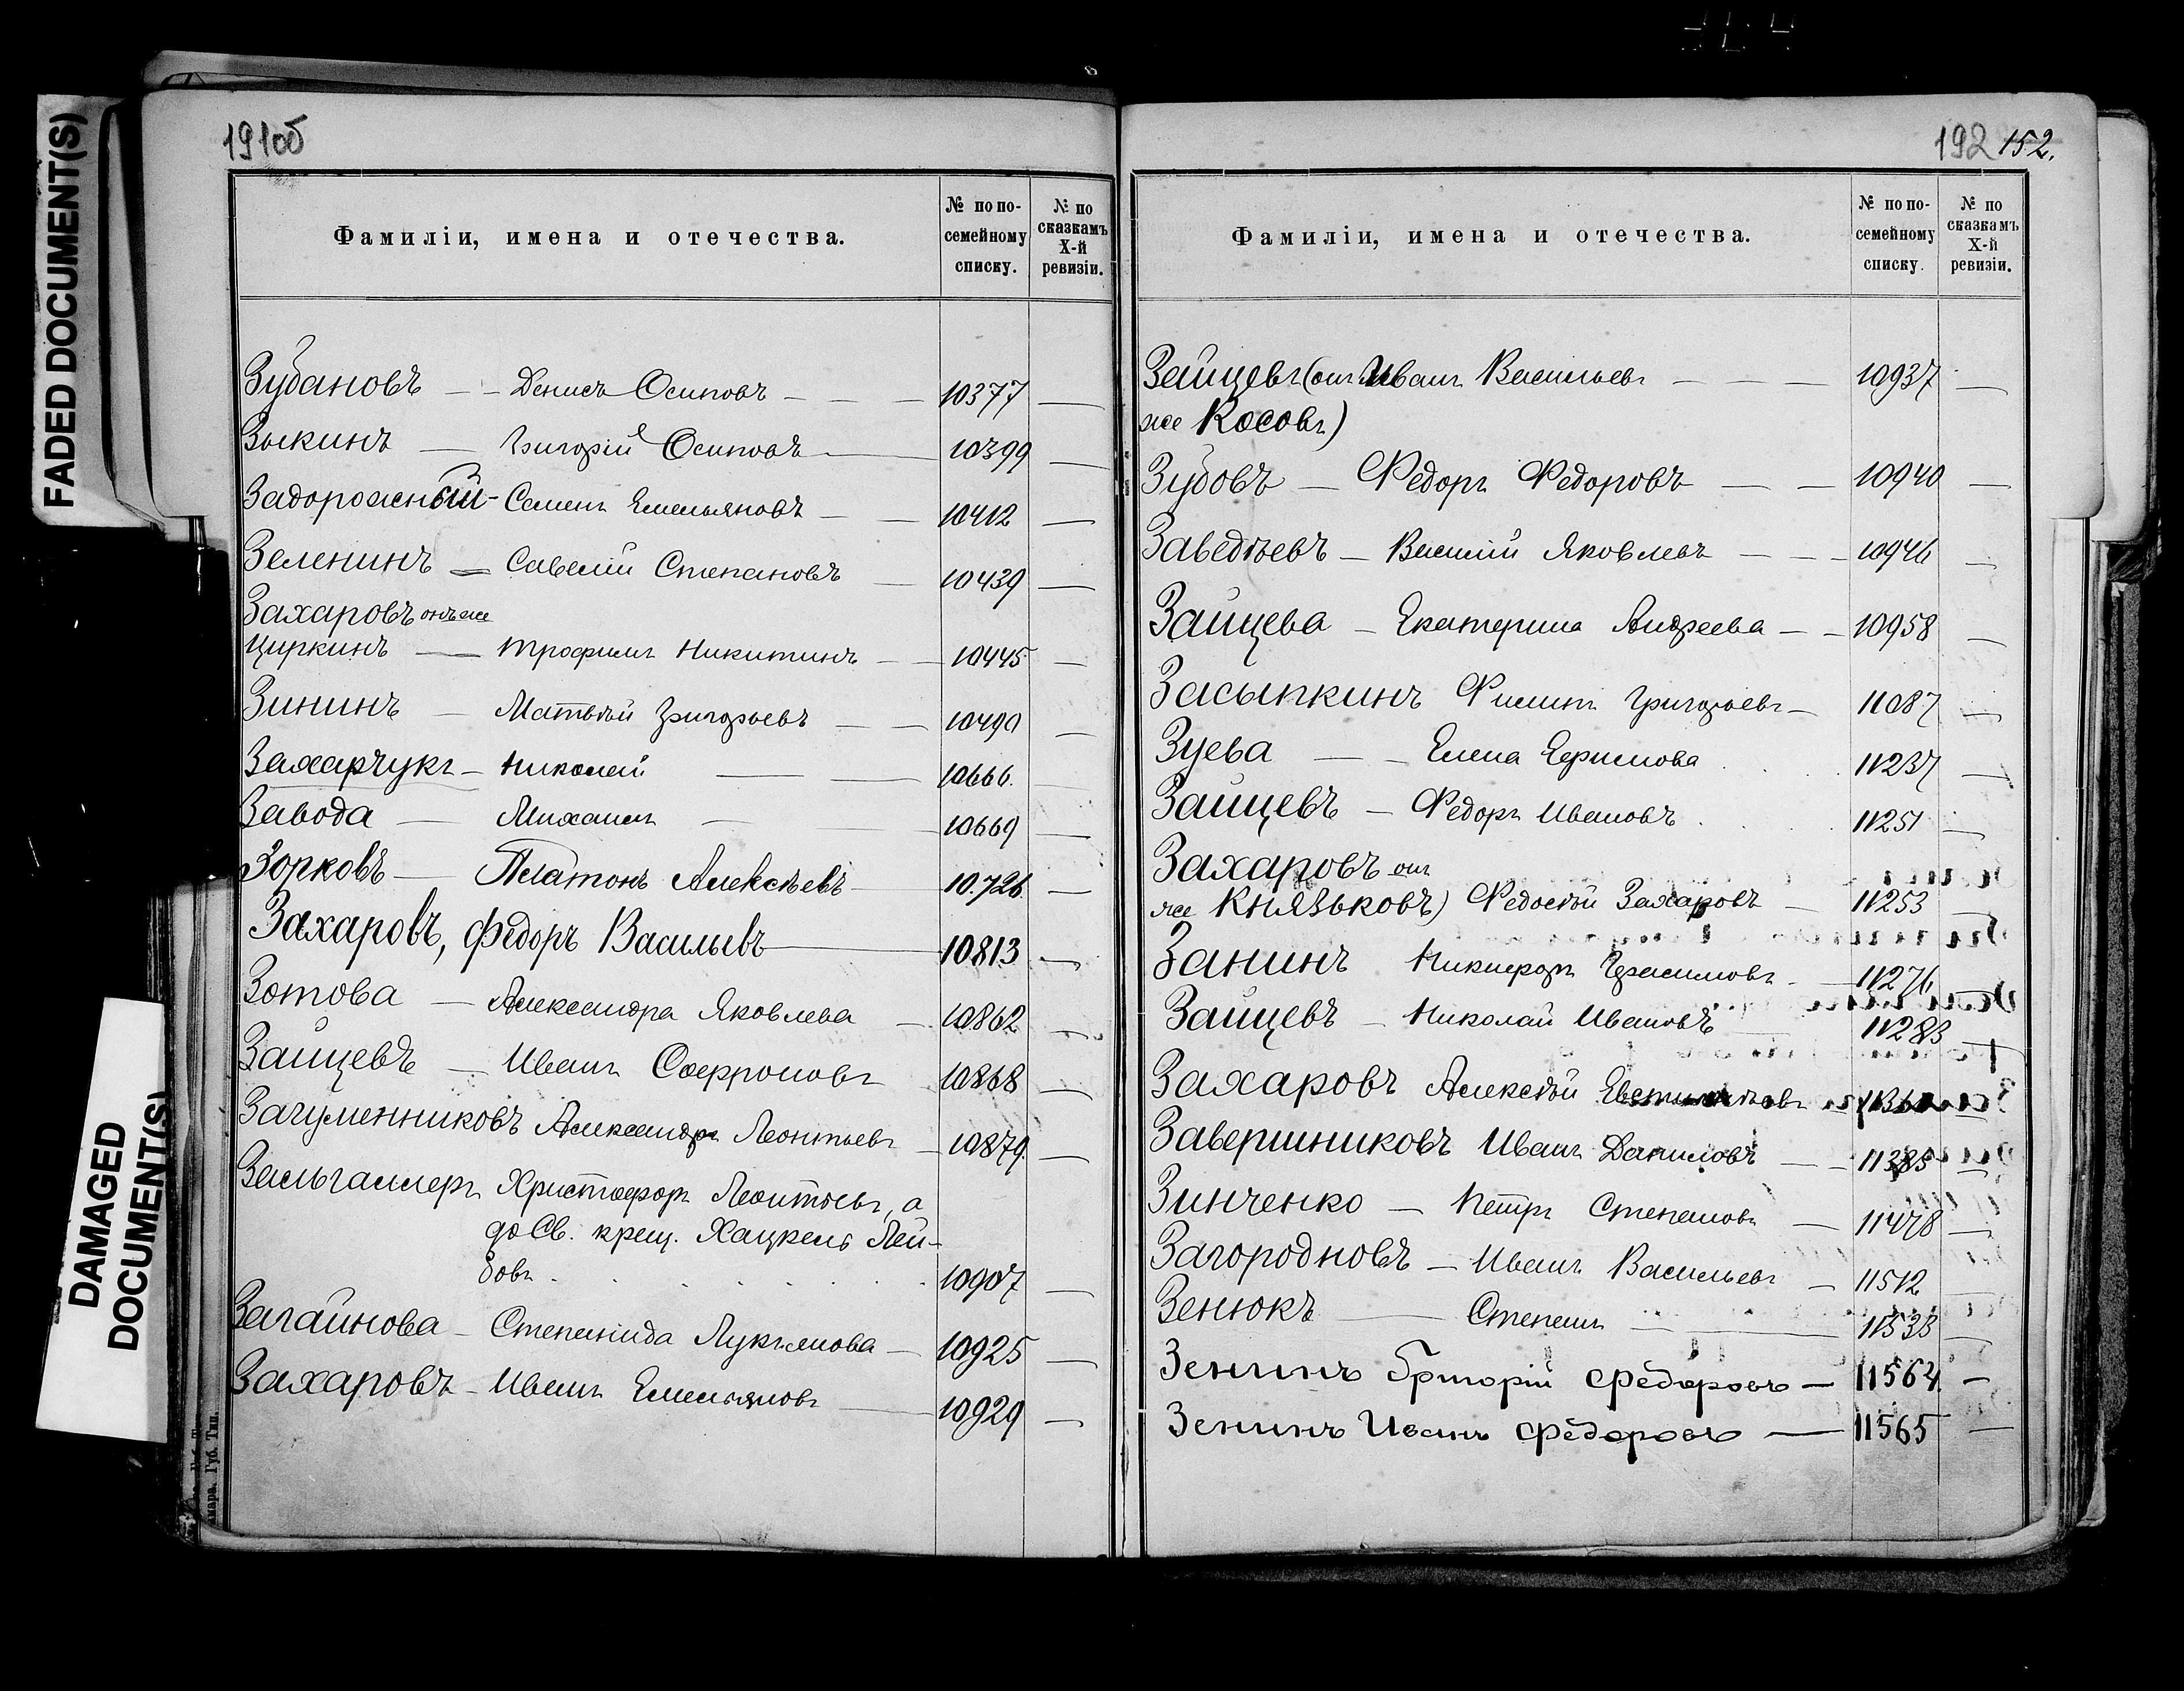 FADED DOCUMENT(S)
DAMAGED
DOCUMENT(S)
191об
Фамиліи, имена и отечества.
№ по по-
семейному
списку.
№ по
сказкамъ
X-й
ревизіи.
Зубановъ — Денисъ Осиповъ — 10377 —
Зыкинъ — Григорій Осиповъ — 10399 —
Задорожный - Семенъ Емельяновъ — 10412 —
Зеленинъ — Савелій Степановъ — 10439 —
Захаровъ онъ же
Циркинъ — Трофимъ Никитинъ — 10445 —
Зининъ — Матвѣй Григорьевъ — 10490 —
Захарчукъ — Николай — 10666. —
Завода — Михаилъ — 10669 —
Зорковъ — Платонъ Алексѣевъ — 10.726 —
Захаровъ, Ѳедоръ Васильевъ — 10813 —
Зотова — Александра Яковлева — 10862 —
Зайцевъ — Иванъ Софроновъ 10868 —
Загуменниковъ Александръ Леонтьевъ — 10879. —
Зальгаллеръ Христофоръ Леонтьевъ, а
до Св. крещ. Хацкель Лей-
бовъ . . . . . . . 10907 —
Загайнова — Степанида Лукьянова — 10925 —
Захаровъ — Иванъ Емельяновъ — 10929 —
Губ. Тип.
192 152.
Фамиліи, имена и отечества.
№ по по-
семейному
списку.
№ по
сказкамъ
X-й
ревизіи.
Зайцевъ (онъ Иванъ Васильевъ — — — 10937 —
же Косовъ)
Зубовъ — Федоръ Федоровъ — — 10940 —
Заведѣевъ — Василій Яковлевъ — — 10946 —
Зайцева — Екатерина Андреева — — 10958 —
Засыпкинъ Филипъ Григорьевъ — 11087 —
Зуева — — Елена Ефимова . . . 11237 —
Зайцевъ — Федоръ Ивановъ . . . 11251 —
Захаровъ онъ
же Князьковъ) Федосѣй Захаровъ — 11253 —
Занинъ Никифоръ Герасимовъ — 11276 —
Зайцевъ — Николай Ивановъ 11283 —
Захаровъ Алексѣй
Завершниковъ Иванъ Даниловъ — 11385 —
Зинченко — Петръ Степановъ — 11478 —
Загородновъ — Иванъ Васильевъ — 11512 —
Зенюкъ — Степанъ — 11533 —
Зенинъ Григорій Федоровъ — 11564 —
Зенинъ Иванъ Федоровъ — 11565 —